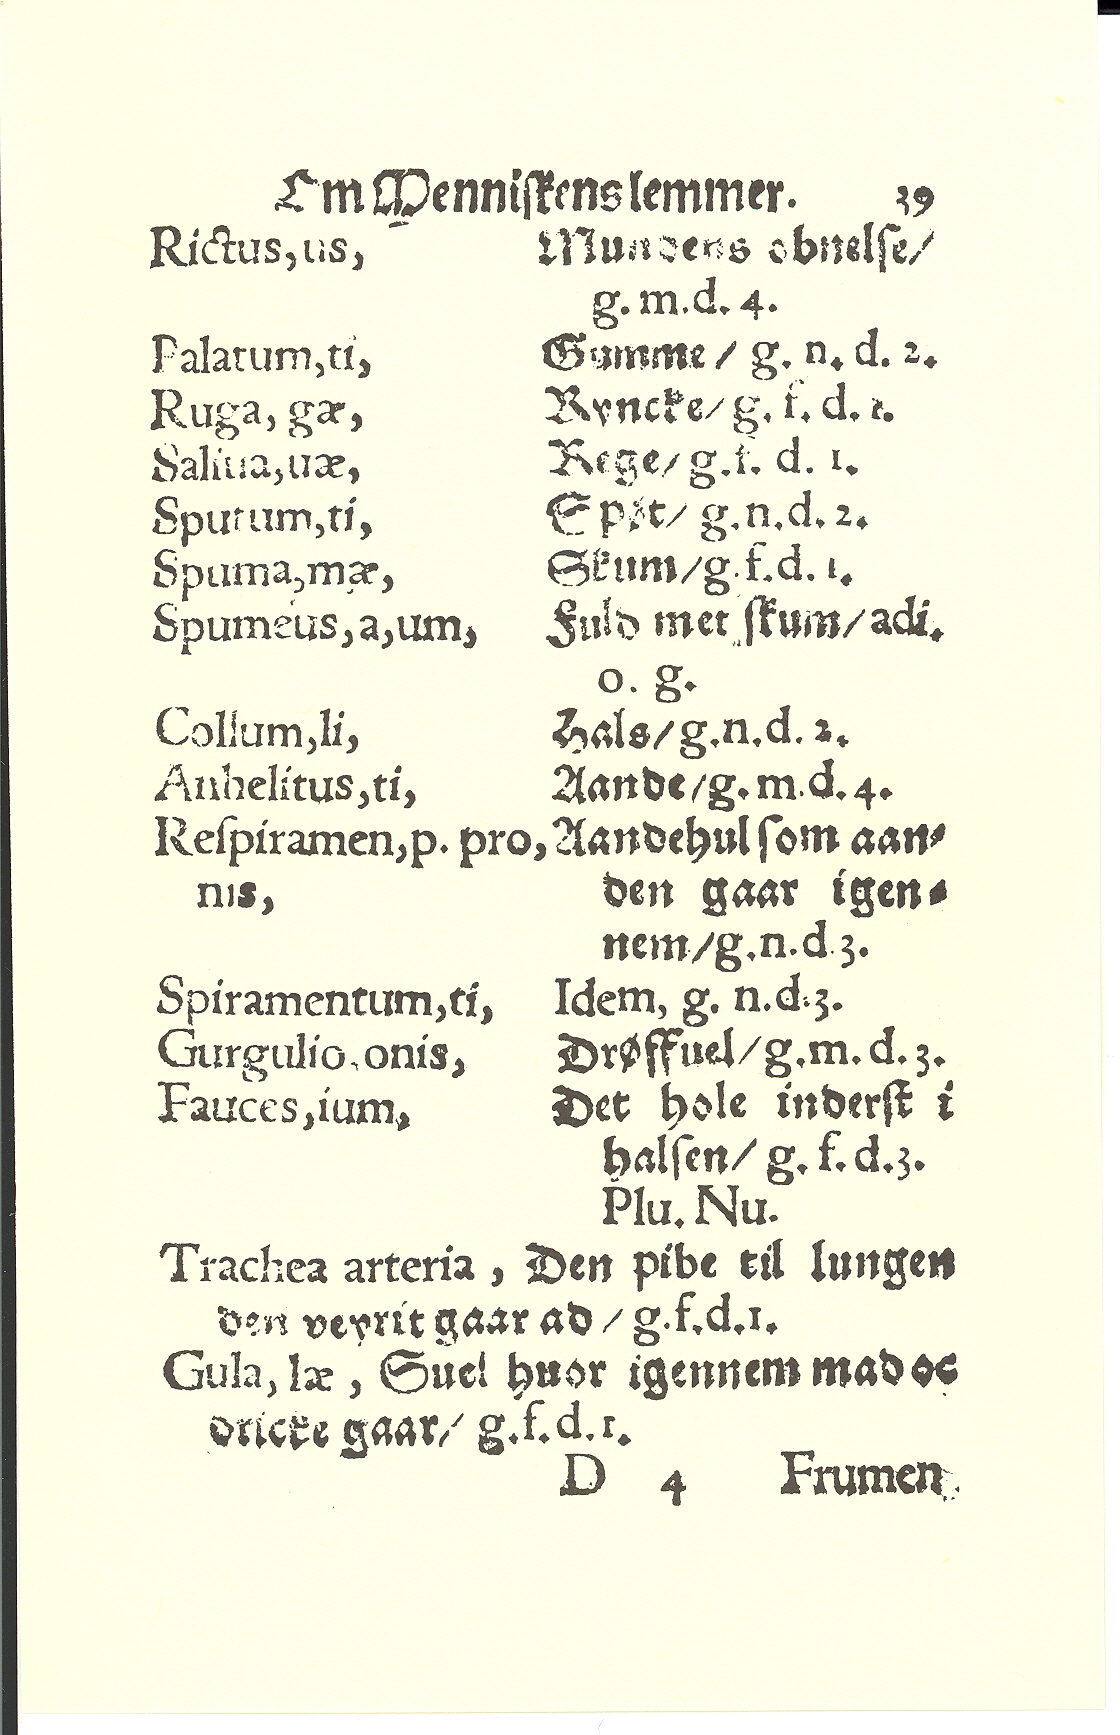 Om Menniſkens lemmer. 39
Rictus, us, Mundens obnelſe/
g. m. d. 4.
Palatum, ti, Gumme / g. n. d. 2.
Ruga, gæ, Ryncke/ g. f. d. 1.
Saliua, uæ, Rege/ g. f. d. 1.
Sputum, ti, Spÿt/ g. n. d. 2.
Spuma, mæ, Skum/ g. f. d. 1.
Spumeus, a, um, Fuld met ſkum/ adi.
o. g.
Collum, li, Hals/ g. n. d. 2.
Anhelitus, ti, Aande/ g. m. d. 4.
Reſpiramen, p. pro, Aandehul ſom aan⸗
nis, den gaar igen⸗
nem/ g. n. d. 3.
Spiramentum, ti, Idem, g. n. d. 3.
Gurgulio, onis, Drøffuel/ g. m. d. 3.
Fauces, ium, Det hole inderſt i
halſen/ g. f. d. 3.
Plu. Nu.
Trachea arteria, Den pibe til lungen
den veyrit gaar ad / g. f. d. 1.
Gula, læ, Suel huor igennem mad oc
dricke gaar/ g. f. d. 1.
D 4 Frumen